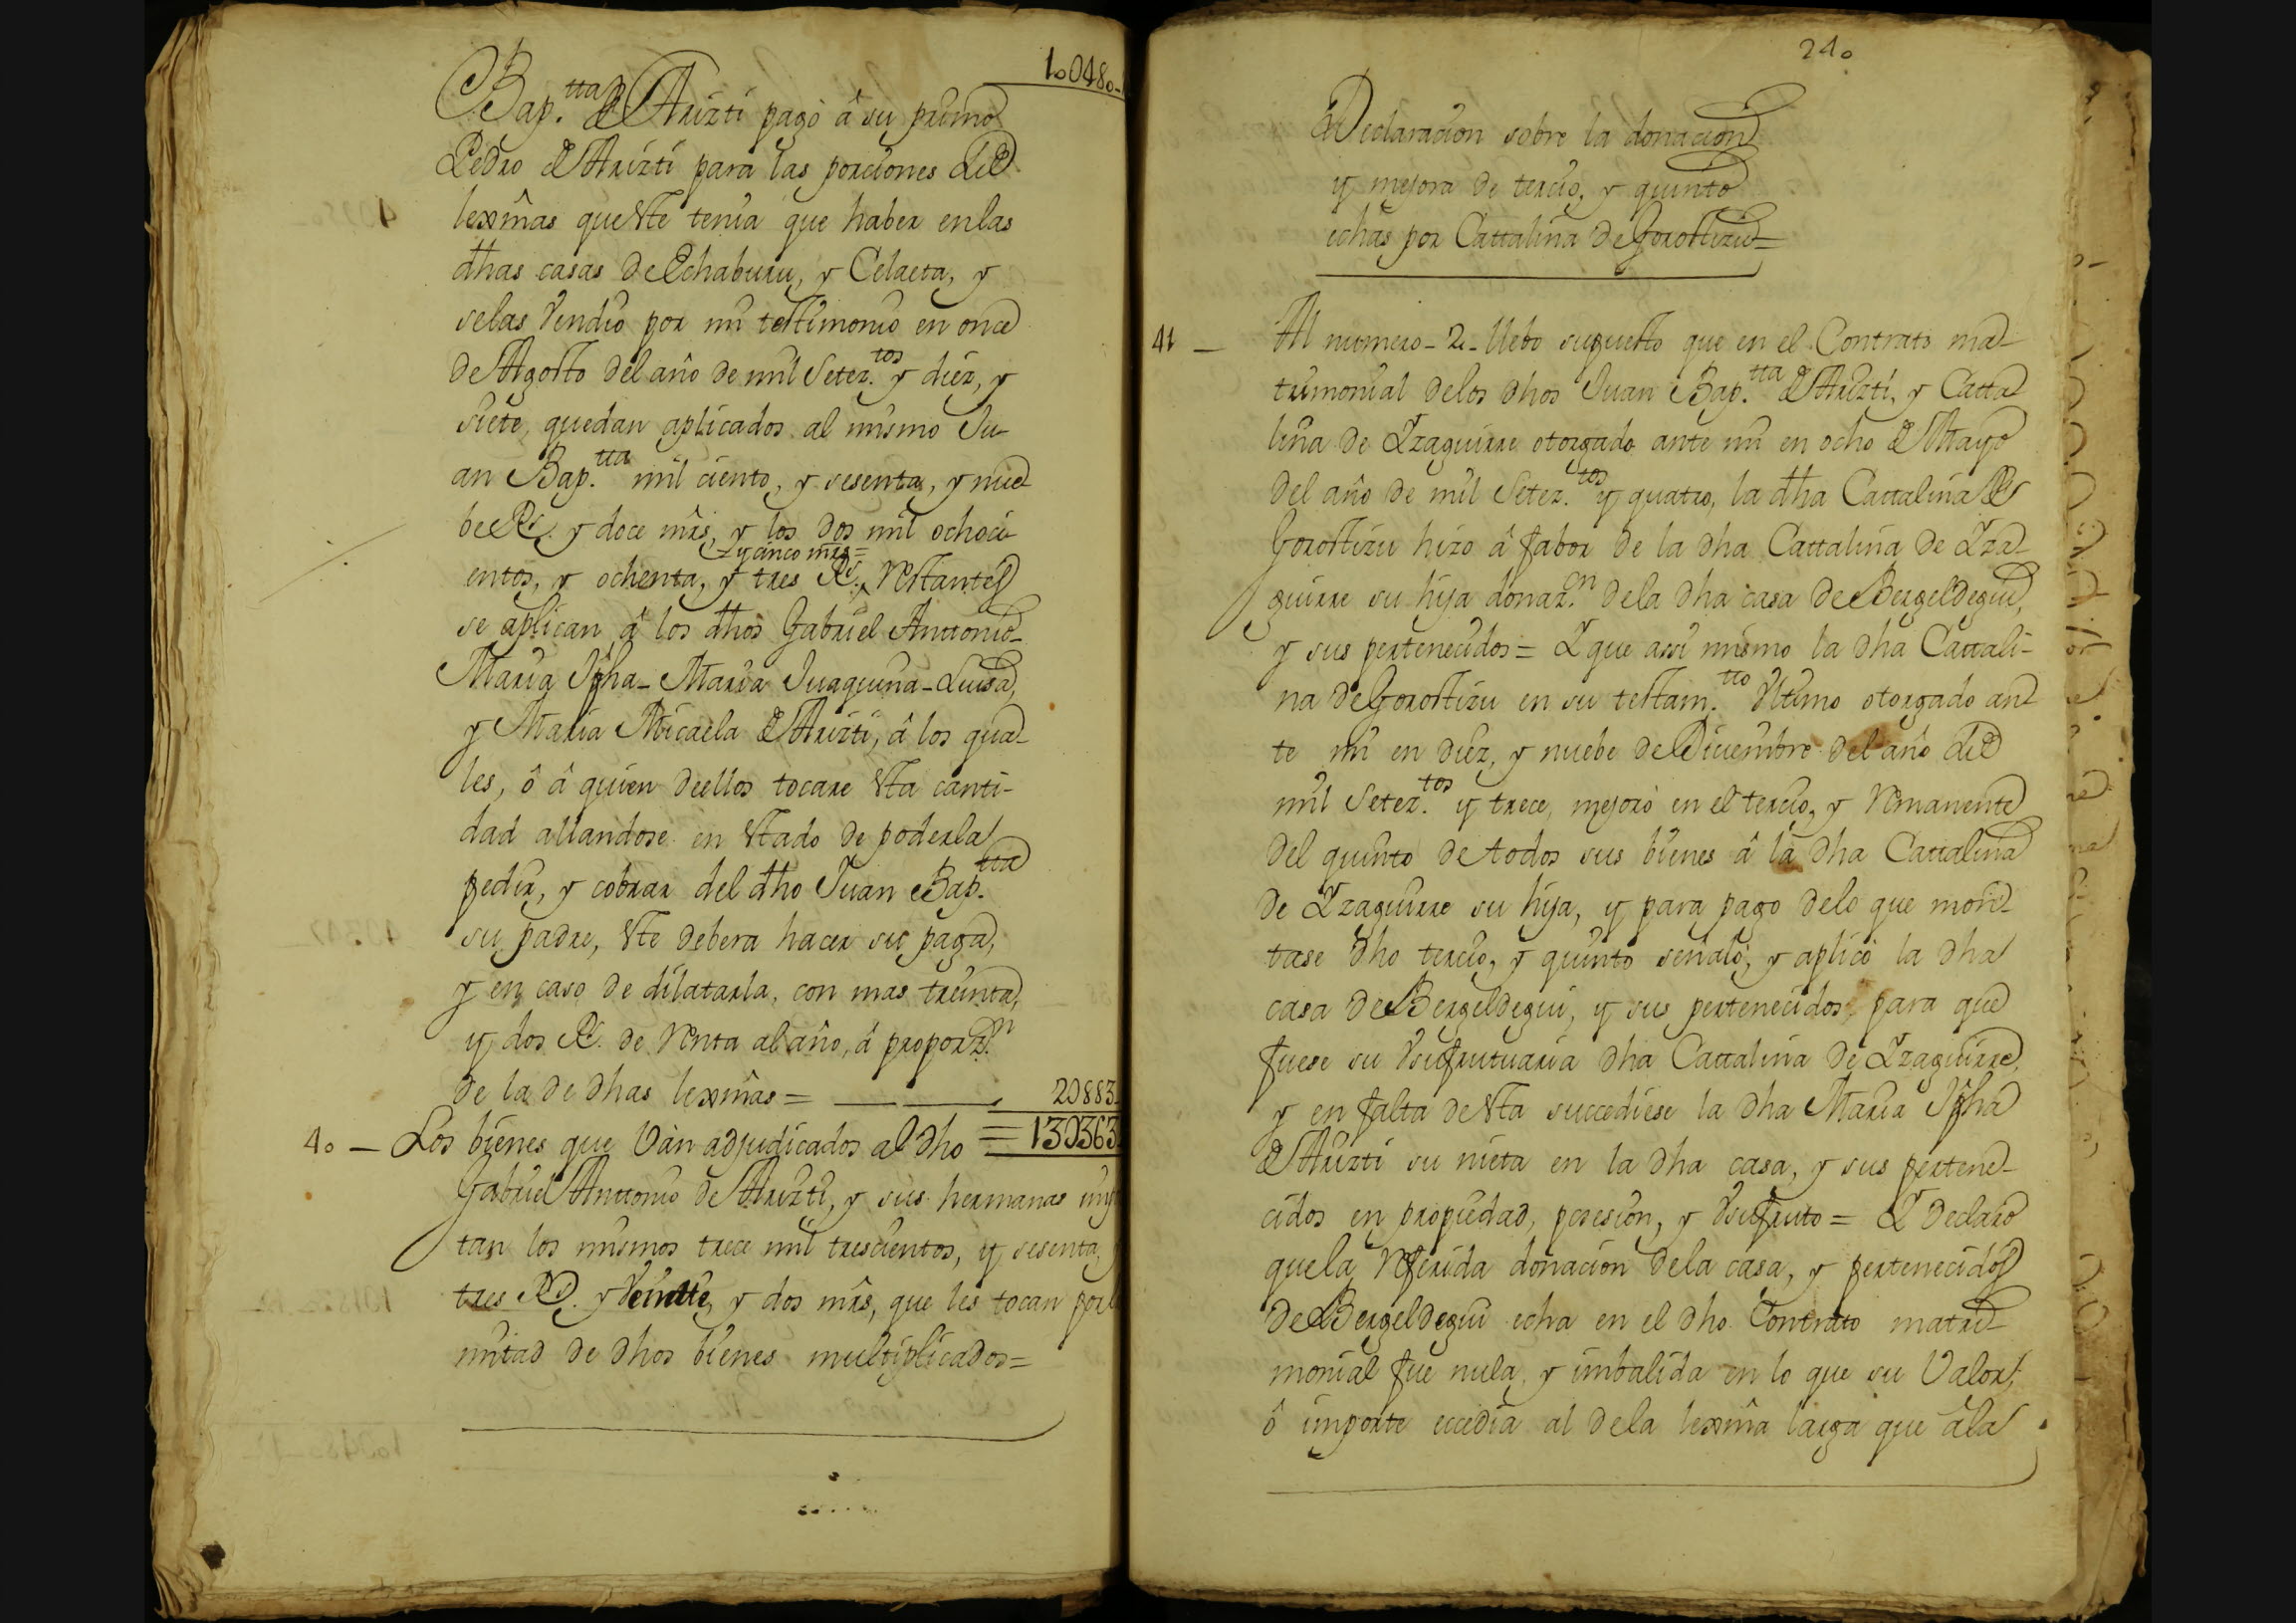 10048o-
Bap.tta de Arizti pagò â su primo
Pedro de Arizti para las porciones de
lexmâs que este tenia que haber enlas
dhas casas de Echaburu, y Celaeta, y
selas Vendio por mi testimonio en once
de Agosto del año de mil Setez.tos y diez, y
siete, quedan aplicados al mismo Ju-
an Bap.tta mil ciento, y sesenta, y nue-
be Rs. y doce mrs, y los dos mil ochoci-
y cinco mrs=
entos, y ochenta, y tres Rs. Restantes
se aplican â los dhos Gabriel Anttonio-
Maria Jpha- Maria Juaquina- Luisa,
y Maria Micaela de Arizti, â los qua-
les, ô â quien deellos tocare esta canti-
dad allandose en estado de poderla
pedir, y cobrar del dho Juan Bap.tta
su padre, este debera hacer su paga,
y en caso de dilatarla, con mas treinta,
y dos Rs. de Renta al año, â proporz.n
de la de dhas lexmâs= 20883
40 - Los bienes que Vàn adjudicados al dho = 130363
Gabriel Anttonio de Arizti, y sus hermanas
tan los mismos trece mil trescientos, y sesenta,
tres Rs. y Veintte, y dos mrs, que les tocan por
mitad de dhos bienes multiplicados=
240
Declaracion sobre la donacion
y mejora de tercio, y quinto
echas por Cattalina de Gorostizu=
41 - Al numero- 2- llebo supuesto que en el Contrato ma-
trimonial delos dhos Juan Bap.tta de Arizti, y Catta
lina de Yzaguirre otorgado ante mi en ocho de Mayo
del año de mil Setez.tos y quatro, la dha Cattalina de
Gorostizu hizo â fabor de la dha Cattalina de Yza-
guirre su hija donaz.on dela dha casa de Bergeldegui,
y sus pertenecidos= Y que assi mismo la dha Cattali-
na de Gorostizu en su testam.tto Vltimo otorgado an-
te mi en diez, y nuebe de Diciembre del año de
mil Setez.tos y trece, mejorò en el tercio, y Remanente
del quinto de todos sus bienes â la dha Cattalina
de Yzaguirre su hija, y para pago delo que mon-
tase dho tercio, y quinto señalò, y aplicò la dha
casa de Bergeldegui, y sus pertenecidos, para que
fuese su Vsufrutuaria dha Cattalina de Yzaguirre,
y en falta de esta succediese la dha Maria Jpha
de Arizti su nieta en la dha casa, y sus pertene-
cidos en propiedad, posesion, y Vsufruto= Y Declaro
quela Referida donacion dela casa, y pertenecidos
de Bergeldegui echa en el dho Contrato matri-
monial fue nula, y imbalida en lo que su Valor,
ô importe eccedia al dela lexmâ larga que âla